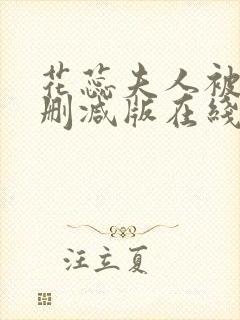 花蕊夫人被
删减版在线
汪立夏